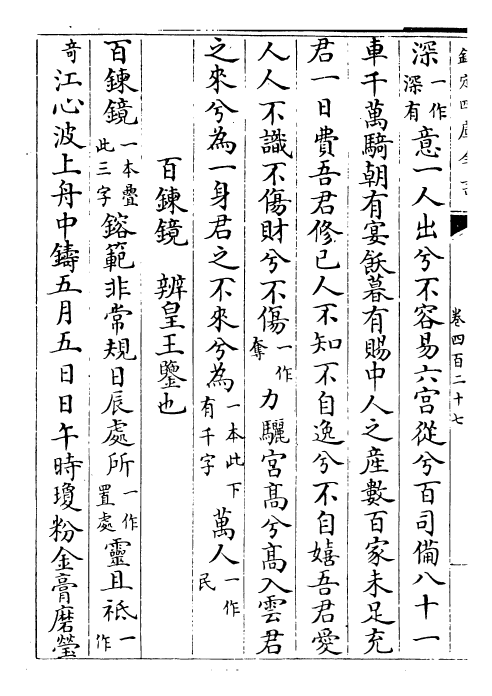 欽定四庫全書
卷四百二十七
深一作深有意一人出兮不容易六宫從兮百司備八十一
車千萬騎朝有宴飫暮有賜中人之産數百家未足充
君一日費吾君修已人不知不自逸兮不自嬉吾君愛
人人不識不傷財兮不傷一作奪力驪宫髙兮髙入雲君
之來兮為一身君之不來兮為一本此下有千字萬人一作民
百鍊鏡 辨皇王鑒也
百鍊鏡一本疊此三字鎔範非常規日辰處所一作置處靈且祇一作
竒江心波上舟中鑄五月五日日午時瓊粉金膏磨瑩